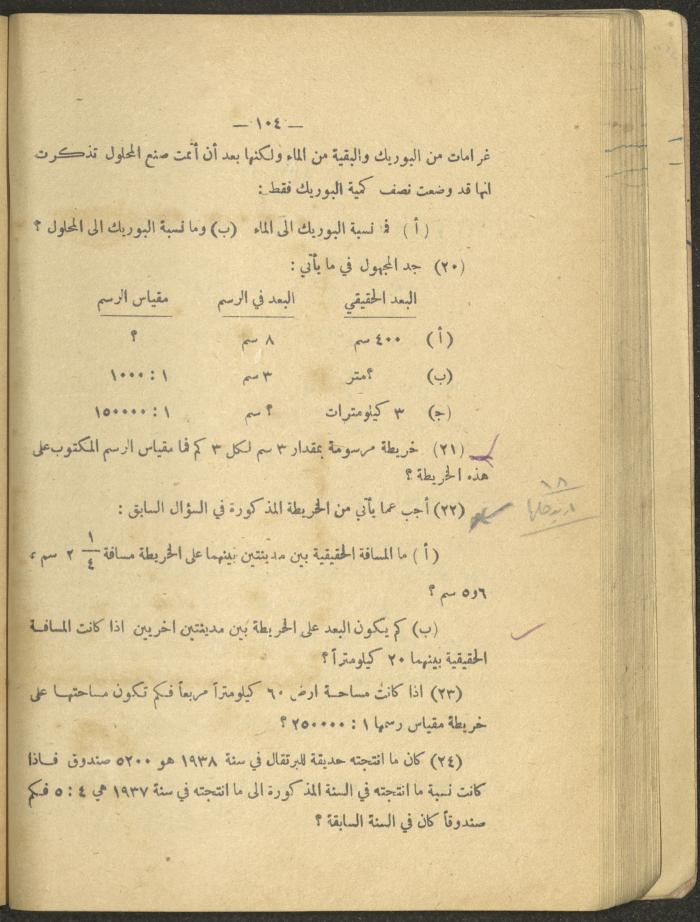 — ١٠٤ —
غرامات من البوريك والبقية من الماء ولكنها بعد أن أتمت صنع المحلول تذكرت
انها قد وضعت نصف كمية البوريك فقط :
( أ ) فما نسبة البوريك الى الماء (ب) وما نسبة البوريك الى المحلول ؟
(٢٠) جد المجهول في ما يأتي :
البعد الحقيقي البعد في الرسم مقياس الرسم
( أ ) ٤٠٠ سم ٨ سم ؟
(ب) ؟ متر ٣ سم ١ : ١٠٠٠
(ج) ٣ كيلومترات ؟ سم ١ : ١٥٠٠٠٠
(٢١) خريطة مرسومة بمقدار ٣ سم لكل ٣ كم فما مقياس الرسم المكتوب على
هذه الخريطة ؟
١٨
(٢٢) أجب عما يأتي من الخريطة المذكورة في السؤال السابق :
( أ ) ما المسافة الحقيقية بين مدينتين بينهما على الخريطة مسافة ١/٤ ٢ سم ،
٦و٥ سم ؟
(ب) كم يكون البعد على الخريطة بين مدينتين اخريين اذا كانت المسافة
الحقيقية بينهما ٢٠ كيلومتراً ؟
(٢٣) اذا كانت مساحة ارض ٦٠ كيلومتراً مربعاً فكم تكون مساحتها على
خريطة مقياس رسمها ١ : ٢٥٠٠٠٠ ؟
(٢٤) كان ما انتجته حديقة للبرتقال في سنة ١٩٣٨ هو ٥٢٠٠ صندوق فاذا
كانت نسبة ما انتجته في السنة المذكورة الى ما انتجته في سنة ١٩٣٧ هي ٤ : ٥ فكم
صندوقاً كان في السنة السابقة ؟